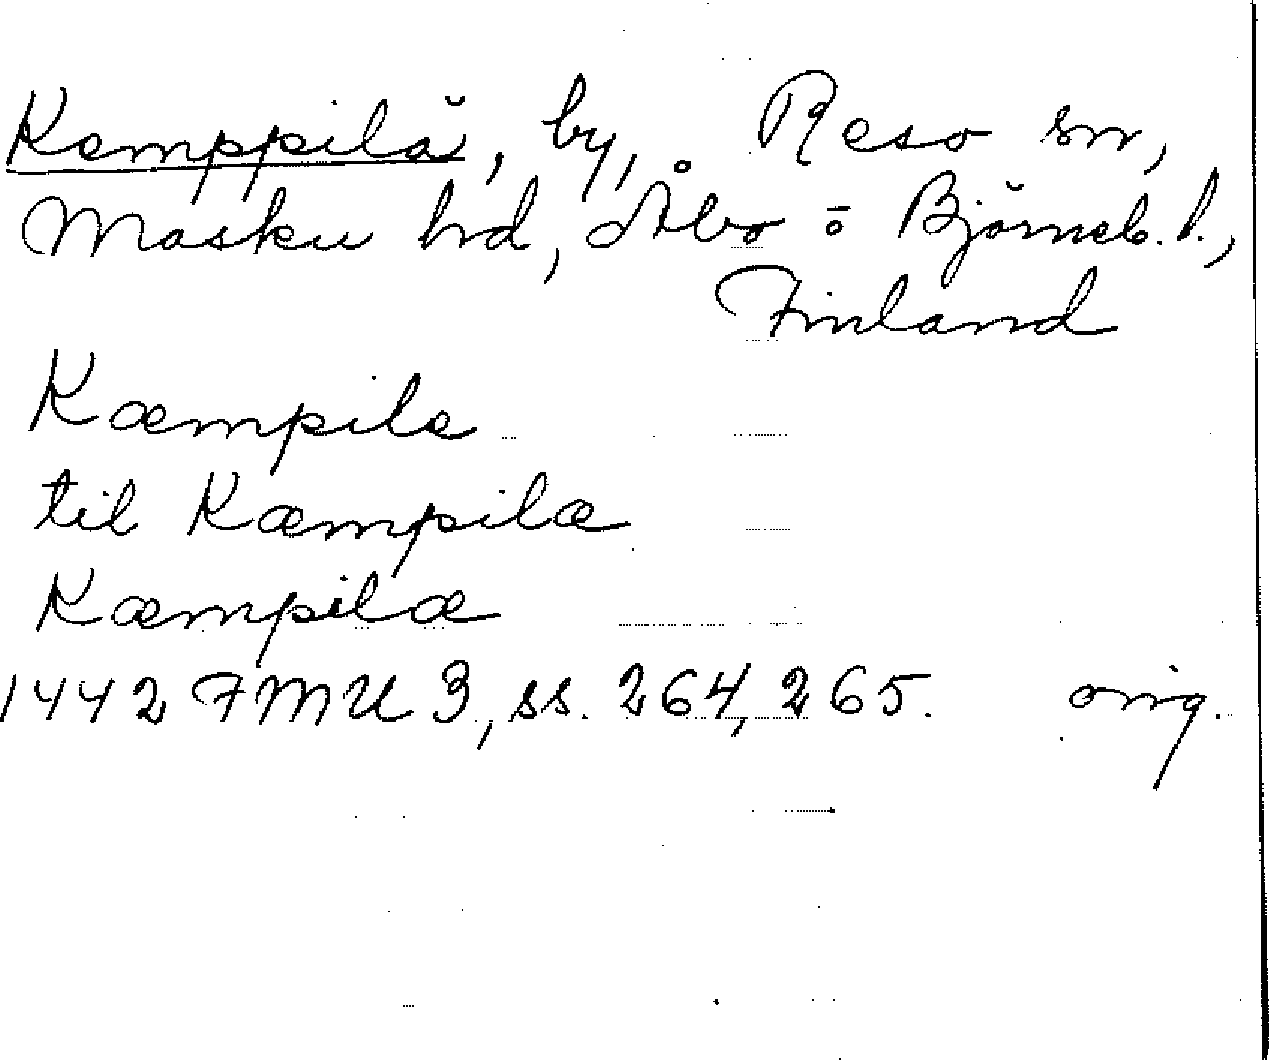 Kemppilä, by, Reso sn,
Masku hd, Åbo o Björneb. l.,
Finland
Kæmpile
til Kæmpilæ
Kæmpilæ
1442 FMU 3, ss. 264, 265. orig.